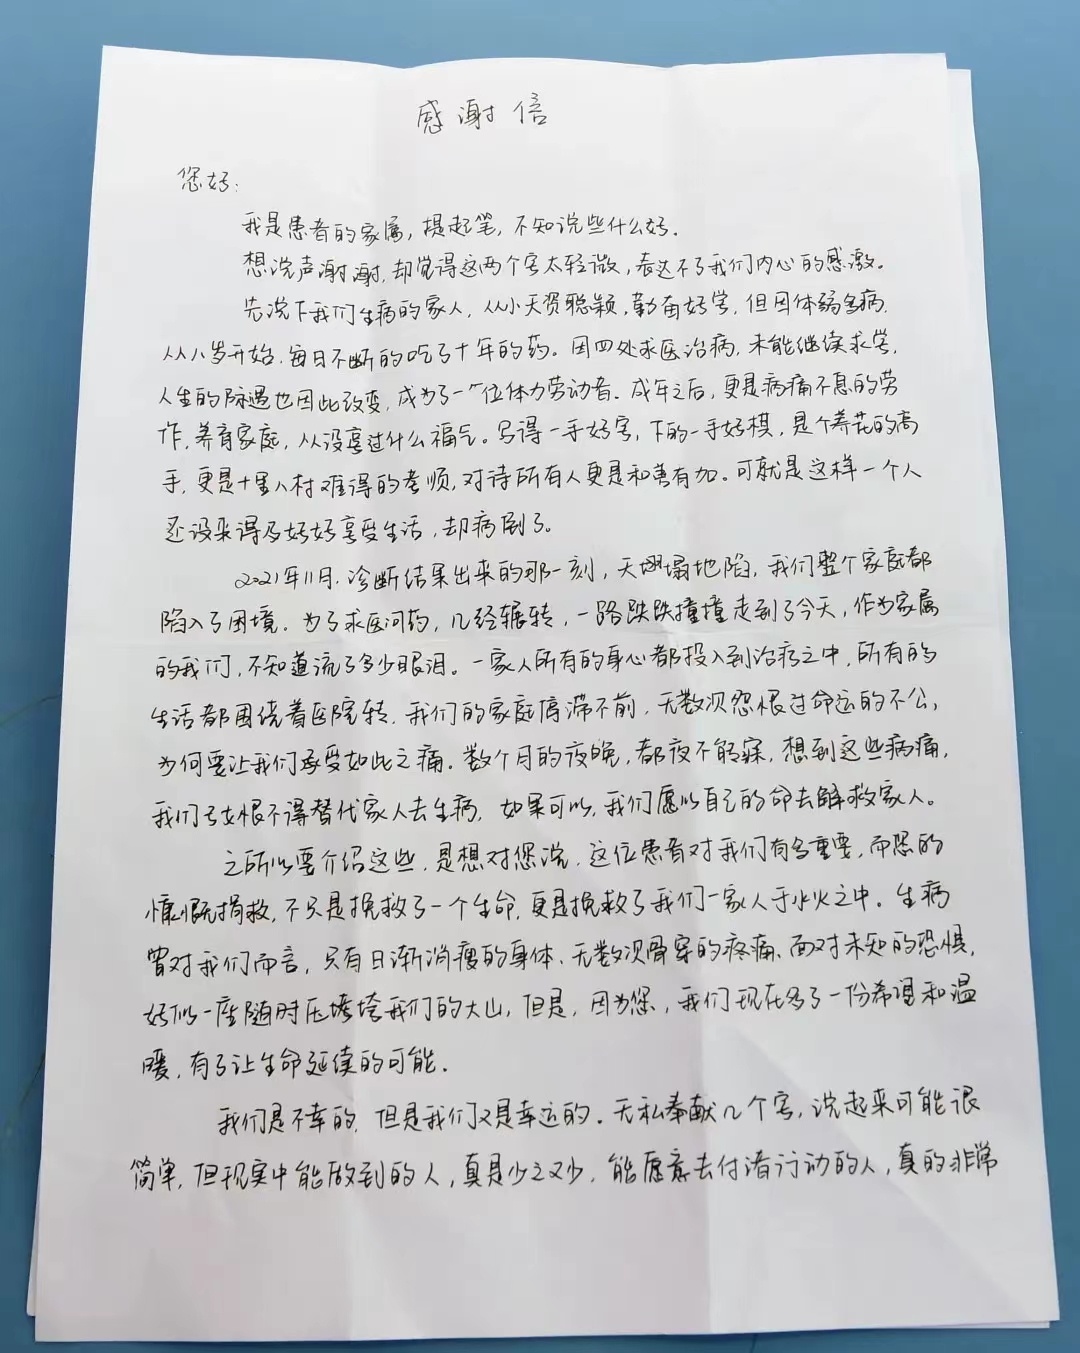 感谢信
您好：
我是患者的家属，提起笔，不知说些什么好。
想说声谢谢，却觉得这两个字太轻微，表达不了我们内心的感激。
先说下我们生病的家人，从小天资聪颖，勤奋好学，但因体弱多病，
从八岁开始，每日不断的吃了十年的药。因四处求医治病，未能继续求学，
人生的际遇也因此改变，成为了一位体力劳动者。成年之后，更是病痛不息的劳
作，养育家庭，从没享过什么福气。写得一手好字，下的一手好棋，是个养花的高
手，更是十里八村难得的孝顺，对待所有人更是和善有加。可就是这样一个人
还没来得及好好享受生活，却病倒了。
2021年11月，诊断结果出来的那一刻，天塌地陷，我们整个家庭都
陷入了困境。为了求医问药，几经辗转，一路跌跌撞撞走到了今天，作为家属
的我们，不知道流了多少眼泪。一家人所有的身心都投入到治疗之中，所有的
生活都围绕着医院转，我们的家庭停滞不前，无数次怨恨过命运的不公，
为何要让我们承受如此之痛。数个月的夜晚，都夜不能寐，想到这些病痛，
我们子女恨不得替代家人去生病，如果可以，我们愿以自己的命去解救家人。
之所以要介绍这些，是想对您说，这位患者对我们有多重要，而您的
慷慨捐救，不只是挽救了一个生命，更是挽救了我们一家人于水火之中。生病
曾对我们而言，只有日渐消瘦的身体、无数次骨穿的疼痛、面对未知的恐惧，
好似一座随时压垮我们的大山，但是，因为您，我们现在多了一份希望和温
暖，有了让生命延续的可能。
我们是不幸的，但是我们又是幸运的。无私奉献几个字，说起来可能很
简单，但现实中能做到的人，真是少之又少，能愿意去付诸行动的人，真的非常